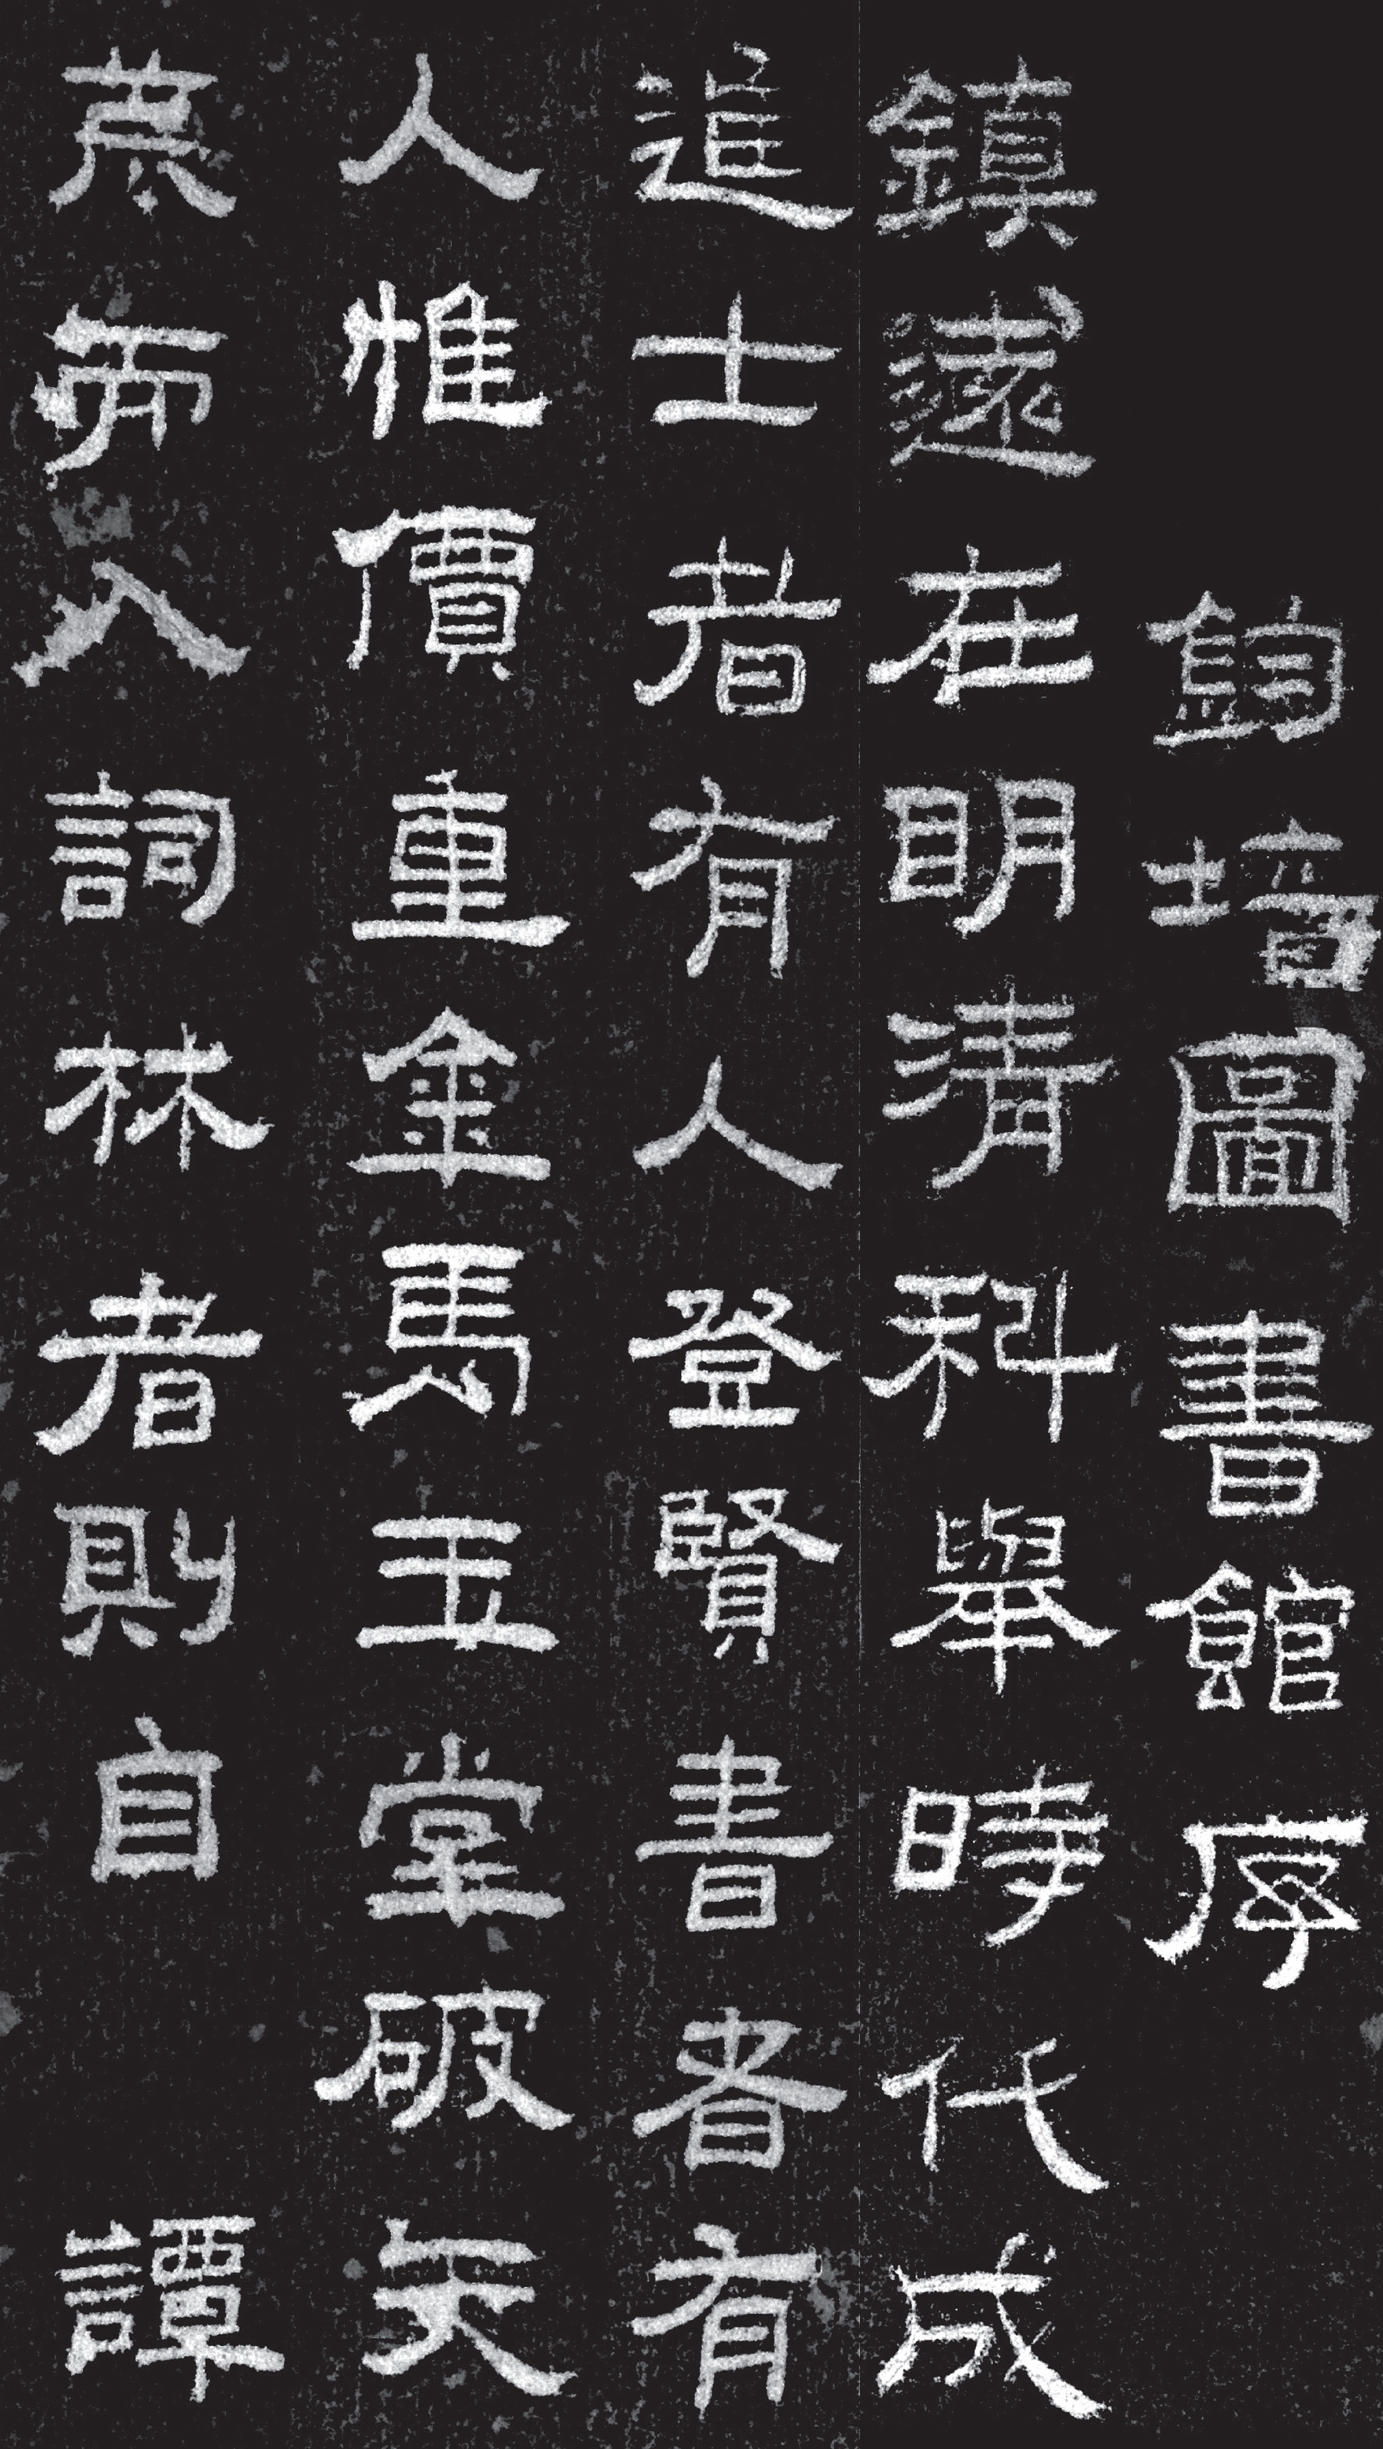 鈞培圖書館序
鎮遠在明清科舉時代成
進士者有人登賢書者有
人惟價重金馬玉堂破天
荒而入詞林者則自　譚